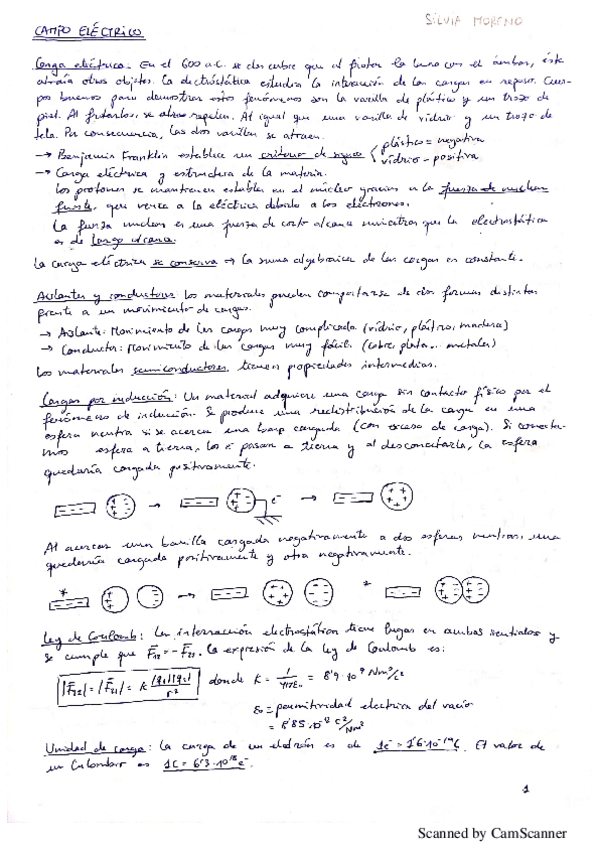 SILVIA MORENO
CAMPO ELÉCTRICO
Carga eléctrica: En el 600 a.C. se descubre que al frotar la lana con el ámbar, éste
atraía otros objetos. La electrostática estudia la interacción de las cargas en reposo. Cuer-
pos buenos para demostrar estos fenómenos son la varilla de plástico y un trozo de
piel. Al frotarlos, se atraen repelen. Al igual que una varilla de vidrio y un trozo de
tela. Por consecuencia, las dos varillas se atraen.
→ Benjamin Franklin establece un criterio de signos { plástico = negativa
vidrio - positiva
→ Carga eléctrica y estructura de la materia.
Los protones se mantienen estables en el núcleo gracias a la fuerza de nuclear
fuerte, que vence a la eléctrica debido a los electrones.
La fuerza nuclear es una fuerza de corto alcance mientras que la electrostática
es de largo alcance.
La carga eléctrica se conserva → la suma algebraica de las cargas es constante.
Aislantes y conductores: Los materiales pueden comportarse de dos formas distintas
frente a un movimiento de cargas.
→ Aislante: Movimiento de las cargas muy complicada (vidrio, plástico, madera)
→ Conductor: Movimiento de las cargas muy fácil (cobre, plata... metales)
Los materiales semiconductores tienen propiedades intermedias.
Cargas por inducción: Un material adquiere una carga sin contacto físico por el
fenómeno de inducción. Se produce una redistribución de la carga en una
esfera neutra si se acerca una barra cargada (con exceso de carga). Si conecta-
mos esfera a tierra, los e⁻ pasan a tierra y al desconectarla, la esfera
quedaría cargada positivamente.
e⁻
Al acercar una barilla cargada negativamente a dos esferas neutras, una
quedaría cargada positivamente y otra negativamente.
* *
Ley de Coulomb: La interacción electrostática tiene lugar en ambos sentidos y
se cumple que F₁₂ = -F₂₁. La expresión de la Ley de Coulomb es:
|F₁₂| = |F₂₁| = K |q₁||q₂| / r² donde K = 1/4πε₀ = 8'9 · 10⁹ Nm²/C²
ε₀ = permitividad electrica del vacío
= 8'85 · 10⁻¹² C²/Nm²
Unidad de carga: La carga de un electrón es de 1e⁻ = 1'6·10⁻¹⁹C. El valor de
un Culombio es 1C = 6'3·10¹⁸e⁻.
1
Scanned by CamScanner